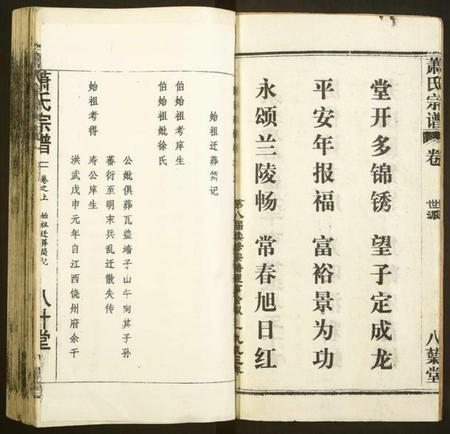 萧氏宗谱
卷
世派
八葉堂
堂开多锦锈 望子定成龙
平安年报福 富裕景为功
永颂兰陵畅 常春旭日红
始祖迁葬简记
伯始祖考庠生
伯始祖妣徐氏
公妣俱葬瓦盖墙子山午向其子孙
蕃衍至明末兵乱迁散失传
始祖考得
寿公庠生
洪武戊申元年自江西饶州府余干
萧氏宗谱
卷之上
始祖迁葬简记
八叶堂